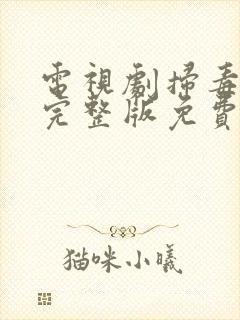 電視劇掃毒
完整版免費
猫咪小曦